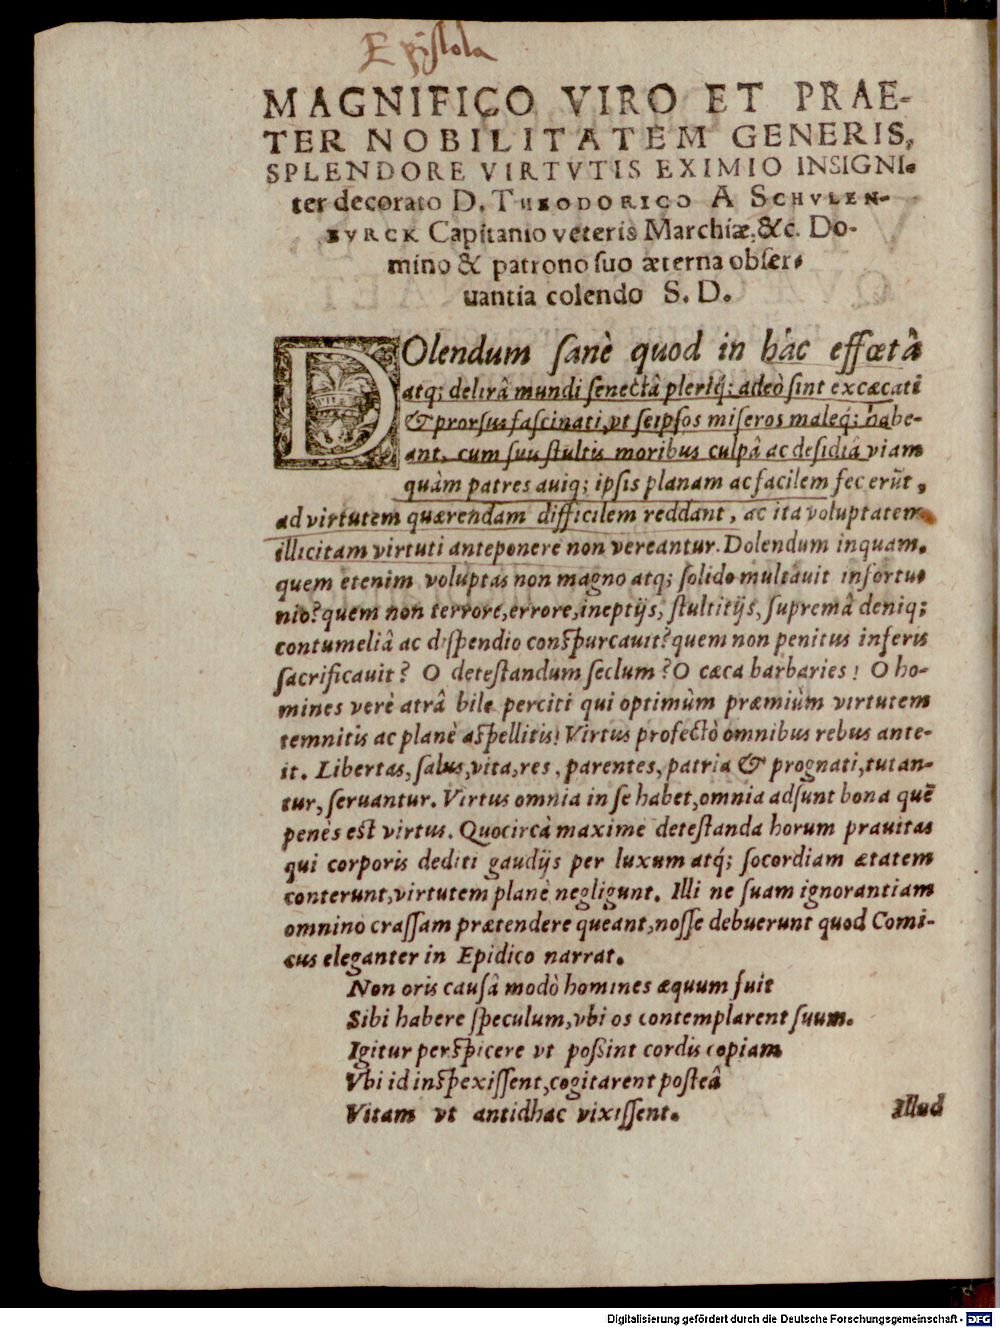 Epistola
MAGNIFICO VIRO ET PRAE-
TER NOBILITATEM GENERIS,
SPLENDORE VIRTVTIS EXIMIO INSIGNI-
ter decorato D. THEODORICO A SCHVLEN-
BVRCK Capitanio veteris Marchiæ, &c. Do-
mino & patrono suo æterna obser-
uantia colendo S. D.
DOlendum sanè quod in hâc effœtâ
atq; delirâ mundi senectâ pleriq́; adeò sint excæcati
& prorsus fascinati, vt seipsos miseros maleq́; habe-
ant, cum suis stultis moribus culpâ ac desidiâ viam
quàm patres auiq; ipsis planam ac facilem fecerūt,
ad virtutem quærendam difficilem reddant, ac ita voluptatem
illicitam virtuti anteponere non vereantur. Dolendum inquam.
quem etenim voluptas non magno atq; solido multauit infortu-
nio? quem non terrore, errore, ineptijs, stultitijs, supremâ deniq;
contumeliâ ac dispendio conspurcauit? quem non penitus inferis
sacrificauit? O detestandum seclum? O cæca barbaries! O ho-
mines verè atrâ bile perciti qui optimùm præmiùm virtutem
temnitis ac planè aspellitis! Virtus profectò omnibus rebus ante-
it. Libertas, salus, vita, res, parentes, patria & prognati, tutan-
tur, seruantur. Virtus omnia in se habet, omnia adsunt bona quē
penès est virtus. Quocircà maxime detestanda horum prauitas
qui corporis dediti gaudijs per luxum atq́; socordiam ætatem
conterunt, virtutem planè negligunt. Illi ne suam ignorantiam
omnino crassam prætendere queant, nosse debuerunt quod Comi-
cus eleganter in Epidico narrat.
Non oris causâ modò homines æquum fuit
Sibi habere speculum, vbi os contemplarent suum.
Igitur perspicere vt possint cordis copiam
Vbi id inspexissent, cogitarent posteâ
Vitam vt antidhac vixissent.
Illud
Digitalisierung gefördert durch die Deutsche Forschungsgemeinschaft - DFG